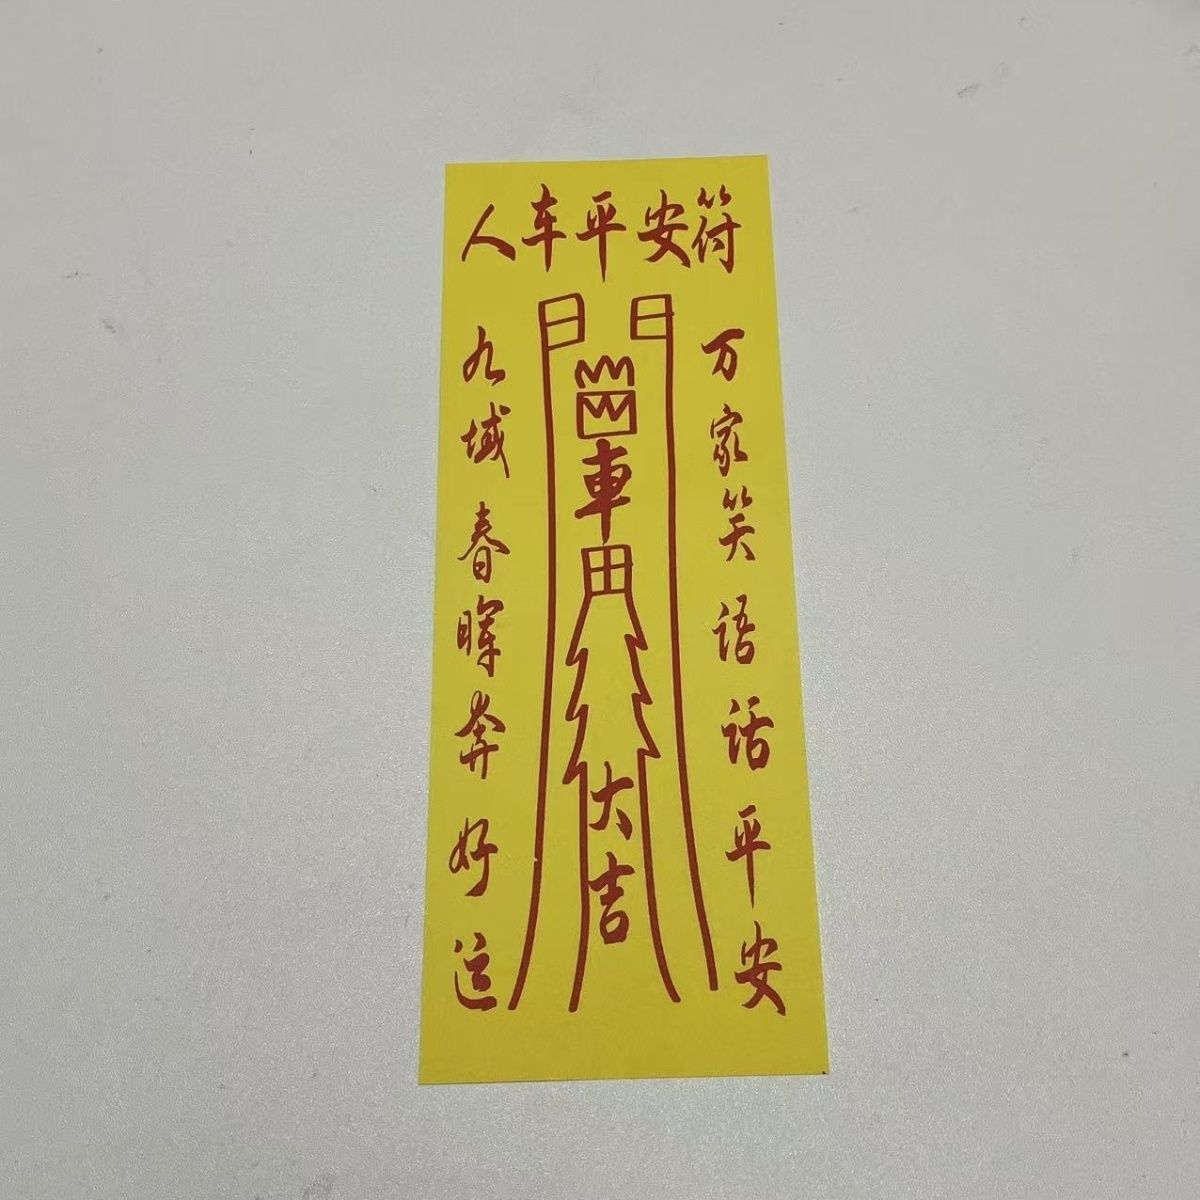 人车平安符
万家笑语话平安
九域春晖奔好运
日 日
車
田
大吉